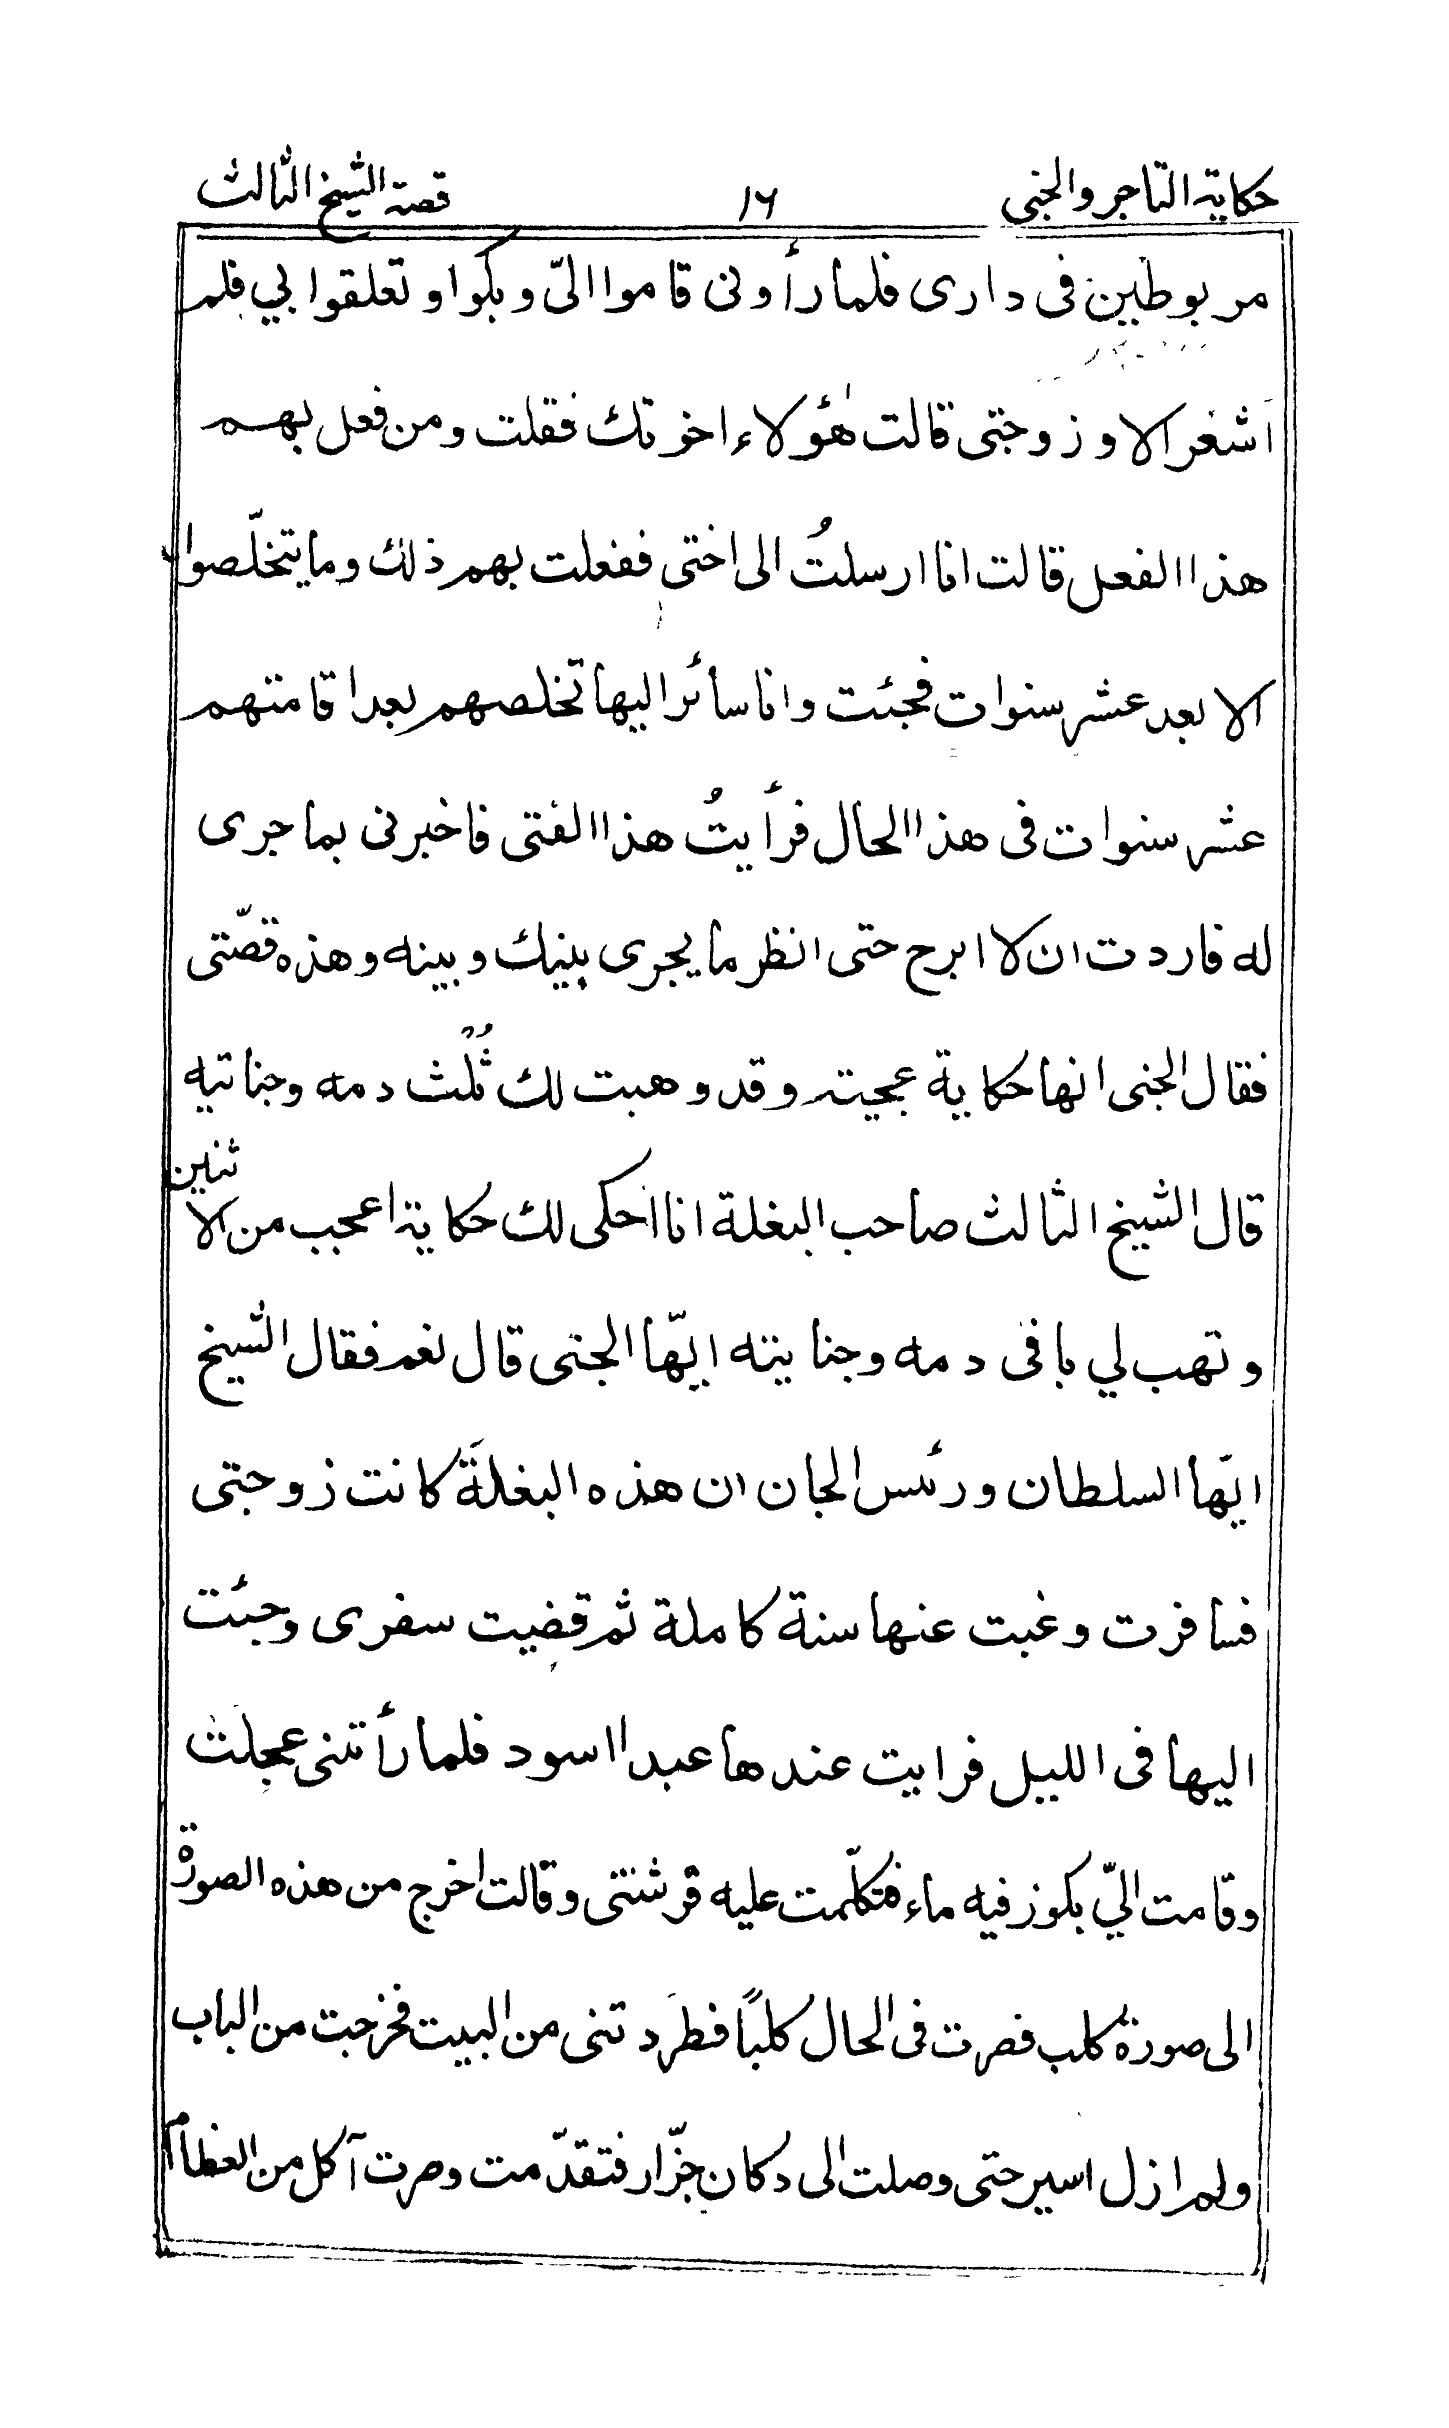 حكاية التاجر والجني ١٦ قصة الشيخ الثالث
مربوطين فى دارى فلما رأونى قاموا اليّ وبكوا وتعلقوا بي فلم
اشعر الا وزوجتى قالت هٰؤلاء اخوتك فقلت ومن فعل بهم
هذا الفعل قالت انا ارسلتُ الى اختى ففعلت بهم ذلك وما يتخلّصوا
الا بعد عشر سنوات فجئت وانا سائر اليها تخلصهم بعد اقامتهم
عشر سنوات فى هذا الحال فرأيتُ هذا الفتى فاخبرنى بما جرى
له فاردت ان لا ابرح حتى انظر ما يجرى بينك وبينه وهذه قصّتى
فقال الجنى انها حكاية عجيبة وقد وهبت لك ثُلُث دمه وجنايته
قال الشيخ الثالث صاحب البغلة انا احكى لك حكاية اعجب من الاثنين
وتهب لي باقى دمه وجنايته ايّها الجنى قال نعم فقال الشيخ
ايّها السلطان ورئس الجان ان هذه البغلة كانت زوجتى
فسافرت وغبت عنها سنة كاملة ثم قضيت سفرى وجئت
اليها فى الليل فرايت عندها عبدا اسود فلما رأتنى عجلت
وقامت اليّ بكوز فيه ماء فتكلّمت عليه ورشتنى وقالت اخرج من هذه الصورة
الى صورة كلب فصرت فى الحال كلبًا فطردتنى من البيت فخرجت من الباب
ولم ازل اسير حتى وصلت الى دكان جزّار فتقدّمت وصرت آكل من العظام